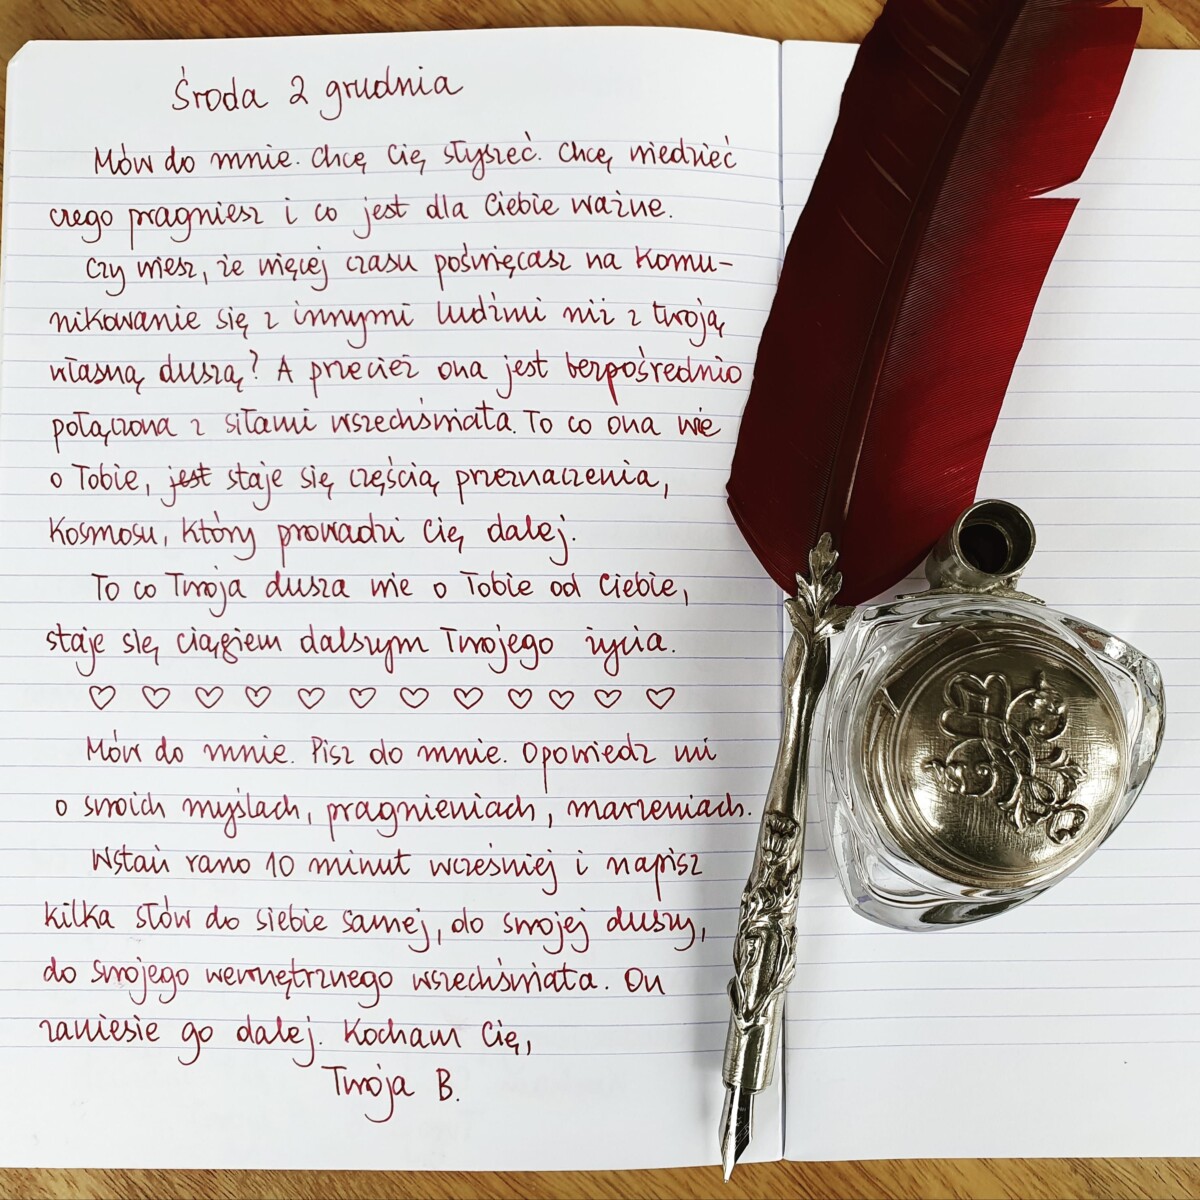 Środa 2 grudnia
Mów do mnie. Chcę Cię słyszeć. Chcę wiedzieć
czego pragniesz i co jest dla Ciebie ważne.
Czy wiesz, że więcej czasu poświęcasz na komu-
nikowanie się z innymi ludźmi niż z twoją
własną duszą? A przecież ona jest bezpośrednio
połączona z siłami wszechświata. To co ona wie
o Tobie, jest staje się częścią przeznaczenia,
kosmosu, który prowadzi Cię dalej.
To co Twoja dusza wie o Tobie od Ciebie,
staje się ciągiem dalszym Twojego życia.
♡ ♡ ♡ ♡ ♡ ♡ ♡ ♡ ♡ ♡ ♡ ♡
Mów do mnie. Pisz do mnie. Opowiedz mi
o swoich myślach, pragnieniach, marzeniach.
Wstań rano 10 minut wcześniej i napisz
kilka słów do siebie samej, do swojej duszy,
do swojego wewnętrznego wszechświata. On
zaniesie go dalej. Kocham Cię,
Twoja B.